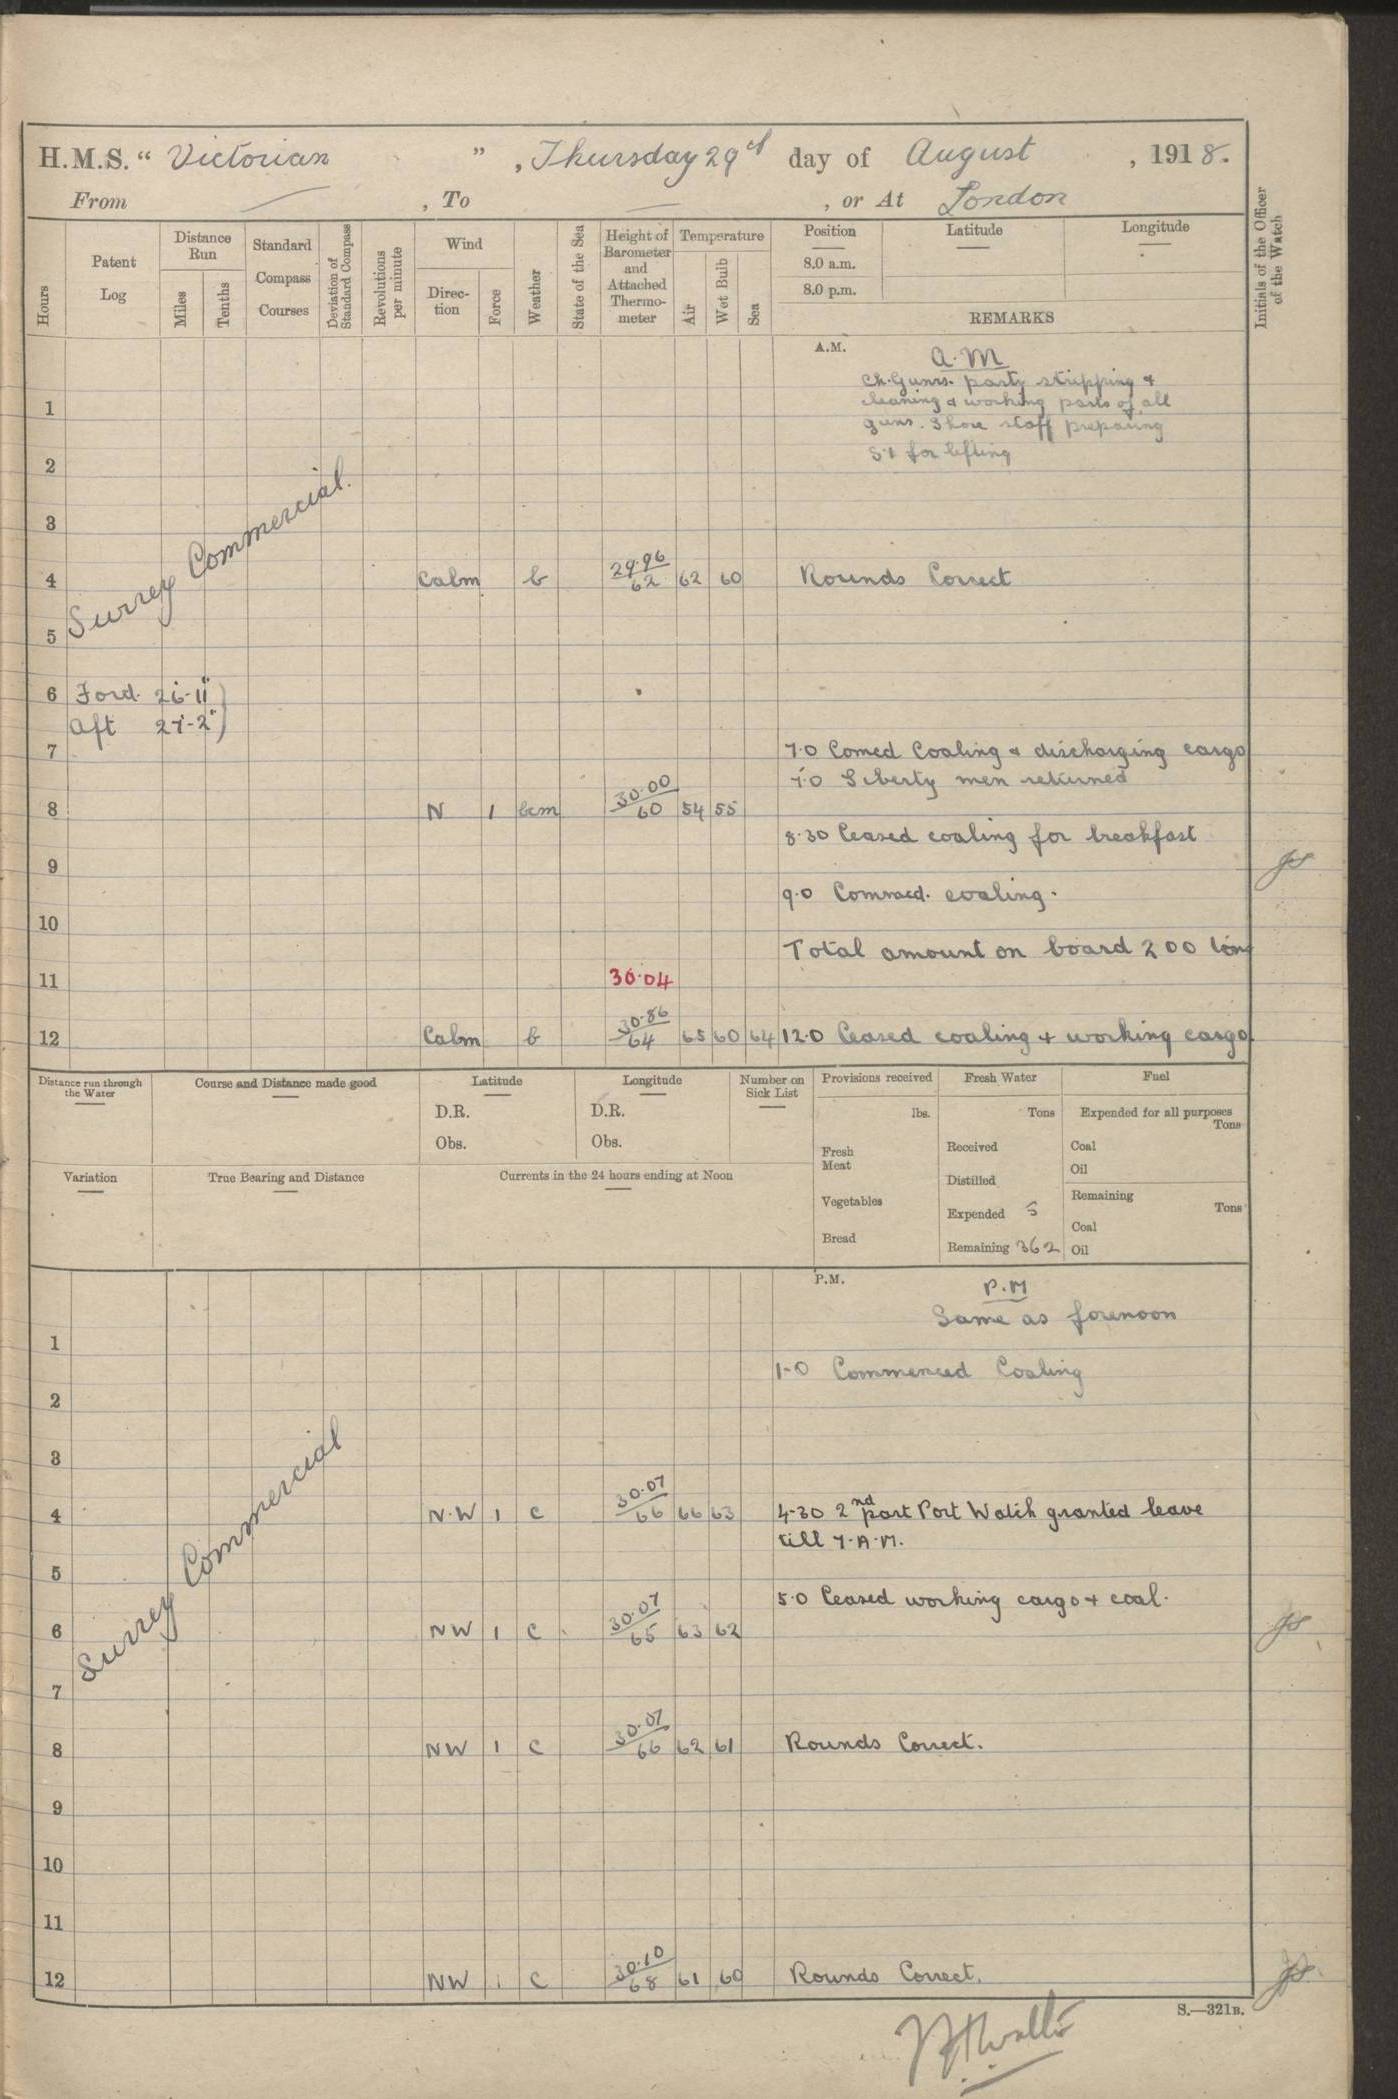 H.M.S. “ Victorian ” , Thursday 29th day of August , 1918.
From — , To — , or At London
Hours
Patent Log
Distance Run
Miles
Tenths
Standard Compass Courses
Deviation of Standard Compass
Revolutions per minute
Wind
Direction
Force
Weather
State of the Sea
Height of Barometer and Attached Thermometer
Temperature
Air
Wet Bulb
Sea
Position
8.0 a.m.
8.0 p.m.
Latitude
Longitude
REMARKS
Initials of the Officer of the Watch
A.M.
A.M
Ch. Gunrs. party stripping &
1 cleaning & working parts of all
guns. Shore staff preparing
2 for lifting
3
Surrey Commercial.
4 Calm b 29.96 62 62 60 Rounds Correct
5
6 Ford. 26-11"
Aft 27-2"
7 7.0 Comed Coaling & discharging cargo
7.0 Liberty men returned
8 N 1 bcm 30.00 60 54 55
8.30 Ceased coaling for breakfast
9
9.0 Commcd. coaling.
10
Total amount on board 200 tons
11 30.04
12 Calm b 30.86 64 65 60 64 12.0 Ceased coaling & working cargo
Distance run through the Water
Course and Distance made good
Latitude
D.R.
Obs.
Longitude
D.R.
Obs.
Number on Sick List
Provisions received
lbs.
Fresh Meat
Vegetables
Bread
Fresh Water
Tons
Received
Distilled
Expended 5
Remaining 362
Fuel
Expended for all purposes
Tons
Coal
Oil
Remaining
Tons
Coal
Oil
Variation
True Bearing and Distance
Currents in the 24 hours ending at Noon
P.M.
P.M
Same as forenoon
1
1-0 Commenced Coaling
2
3
Surrey Commercial
4 N.W 1 c 30.07 66 66 63 4-30 2nd part Port Watch granted leave
till 7.A.M.
5
5.0 Ceased working cargo & coal.
6 NW 1 c 30.07 65 63 62
7
8 NW 1 c 30.07 66 62 61 Rounds Correct.
9
10
11
12 NW 1 c 30.10 68 61 60 Rounds Correct.
S.—321B.